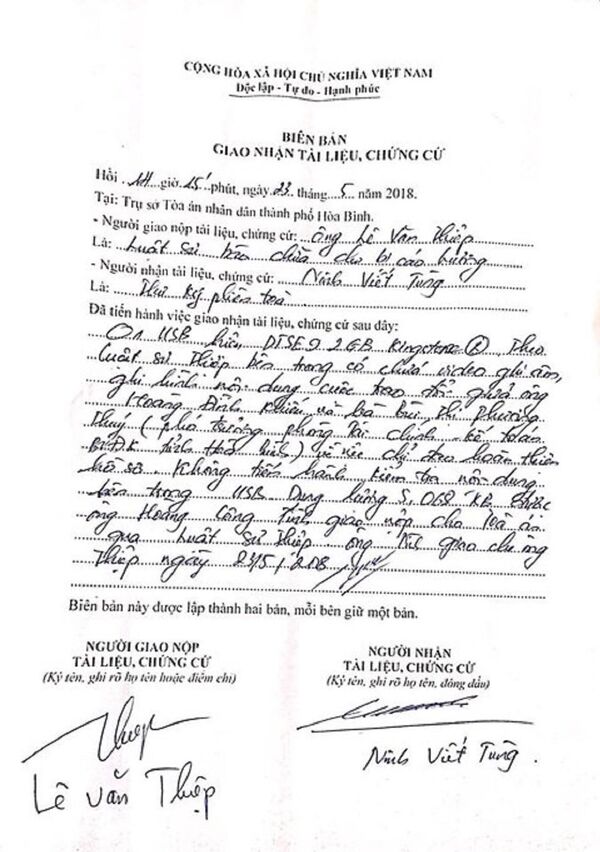 CỘNG HÒA XÃ HỘI CHỦ NGHĨA VIỆT NAM
Độc lập - Tự do - Hạnh phúc
BIÊN BẢN
GIAO NHẬN TÀI LIỆU, CHỨNG CỨ
Hồi 14 giờ 15' phút, ngày 23 tháng 5 năm 2018.
Tại: Trụ sở Tòa án nhân dân thành phố Hòa Bình.
- Người giao nộp tài liệu, chứng cứ: Ông Lê Văn Thiệp
Là: Luật sư bào chữa cho bị cáo Lương
- Người nhận tài liệu, chứng cứ: Ninh Viết Tùng
Là: Thư ký phiên toà
Đã tiến hành việc giao nhận tài liệu, chứng cứ sau đây:
01 USB hiệu DTSE9 2GB Kingston Theo
luật sư Thiệp bên trong có chứa video ghi âm,
ghi hình nội dung cuộc trao đổi giữa ông
Hoàng Đình Khiếu và bà Bùi Thị Phương
Thuý (phó trưởng phòng tài chính kế toán
BVĐK tỉnh Hoà Bình) về việc chỉ đạo hoàn thiện
hồ sơ. Không tiến hành kiểm tra nội dung
bên trong USB. Dung lượng 5,068 KB được
ông Hoàng Công Tình giao nộp cho Toà án
qua luật sư Thiệp, ông Tình giao cho ông
Thiệp ngày 23/5/2018
Biên bản này được lập thành hai bản, mỗi bên giữ một bản.
NGƯỜI GIAO NỘP
TÀI LIỆU, CHỨNG CỨ
(Ký tên, ghi rõ họ tên hoặc điểm chỉ)
Thiệp
Lê Văn Thiệp
NGƯỜI NHẬN
TÀI LIỆU, CHỨNG CỨ
(Ký tên, ghi rõ họ tên, đóng dấu)
Ninh Viết Tùng.